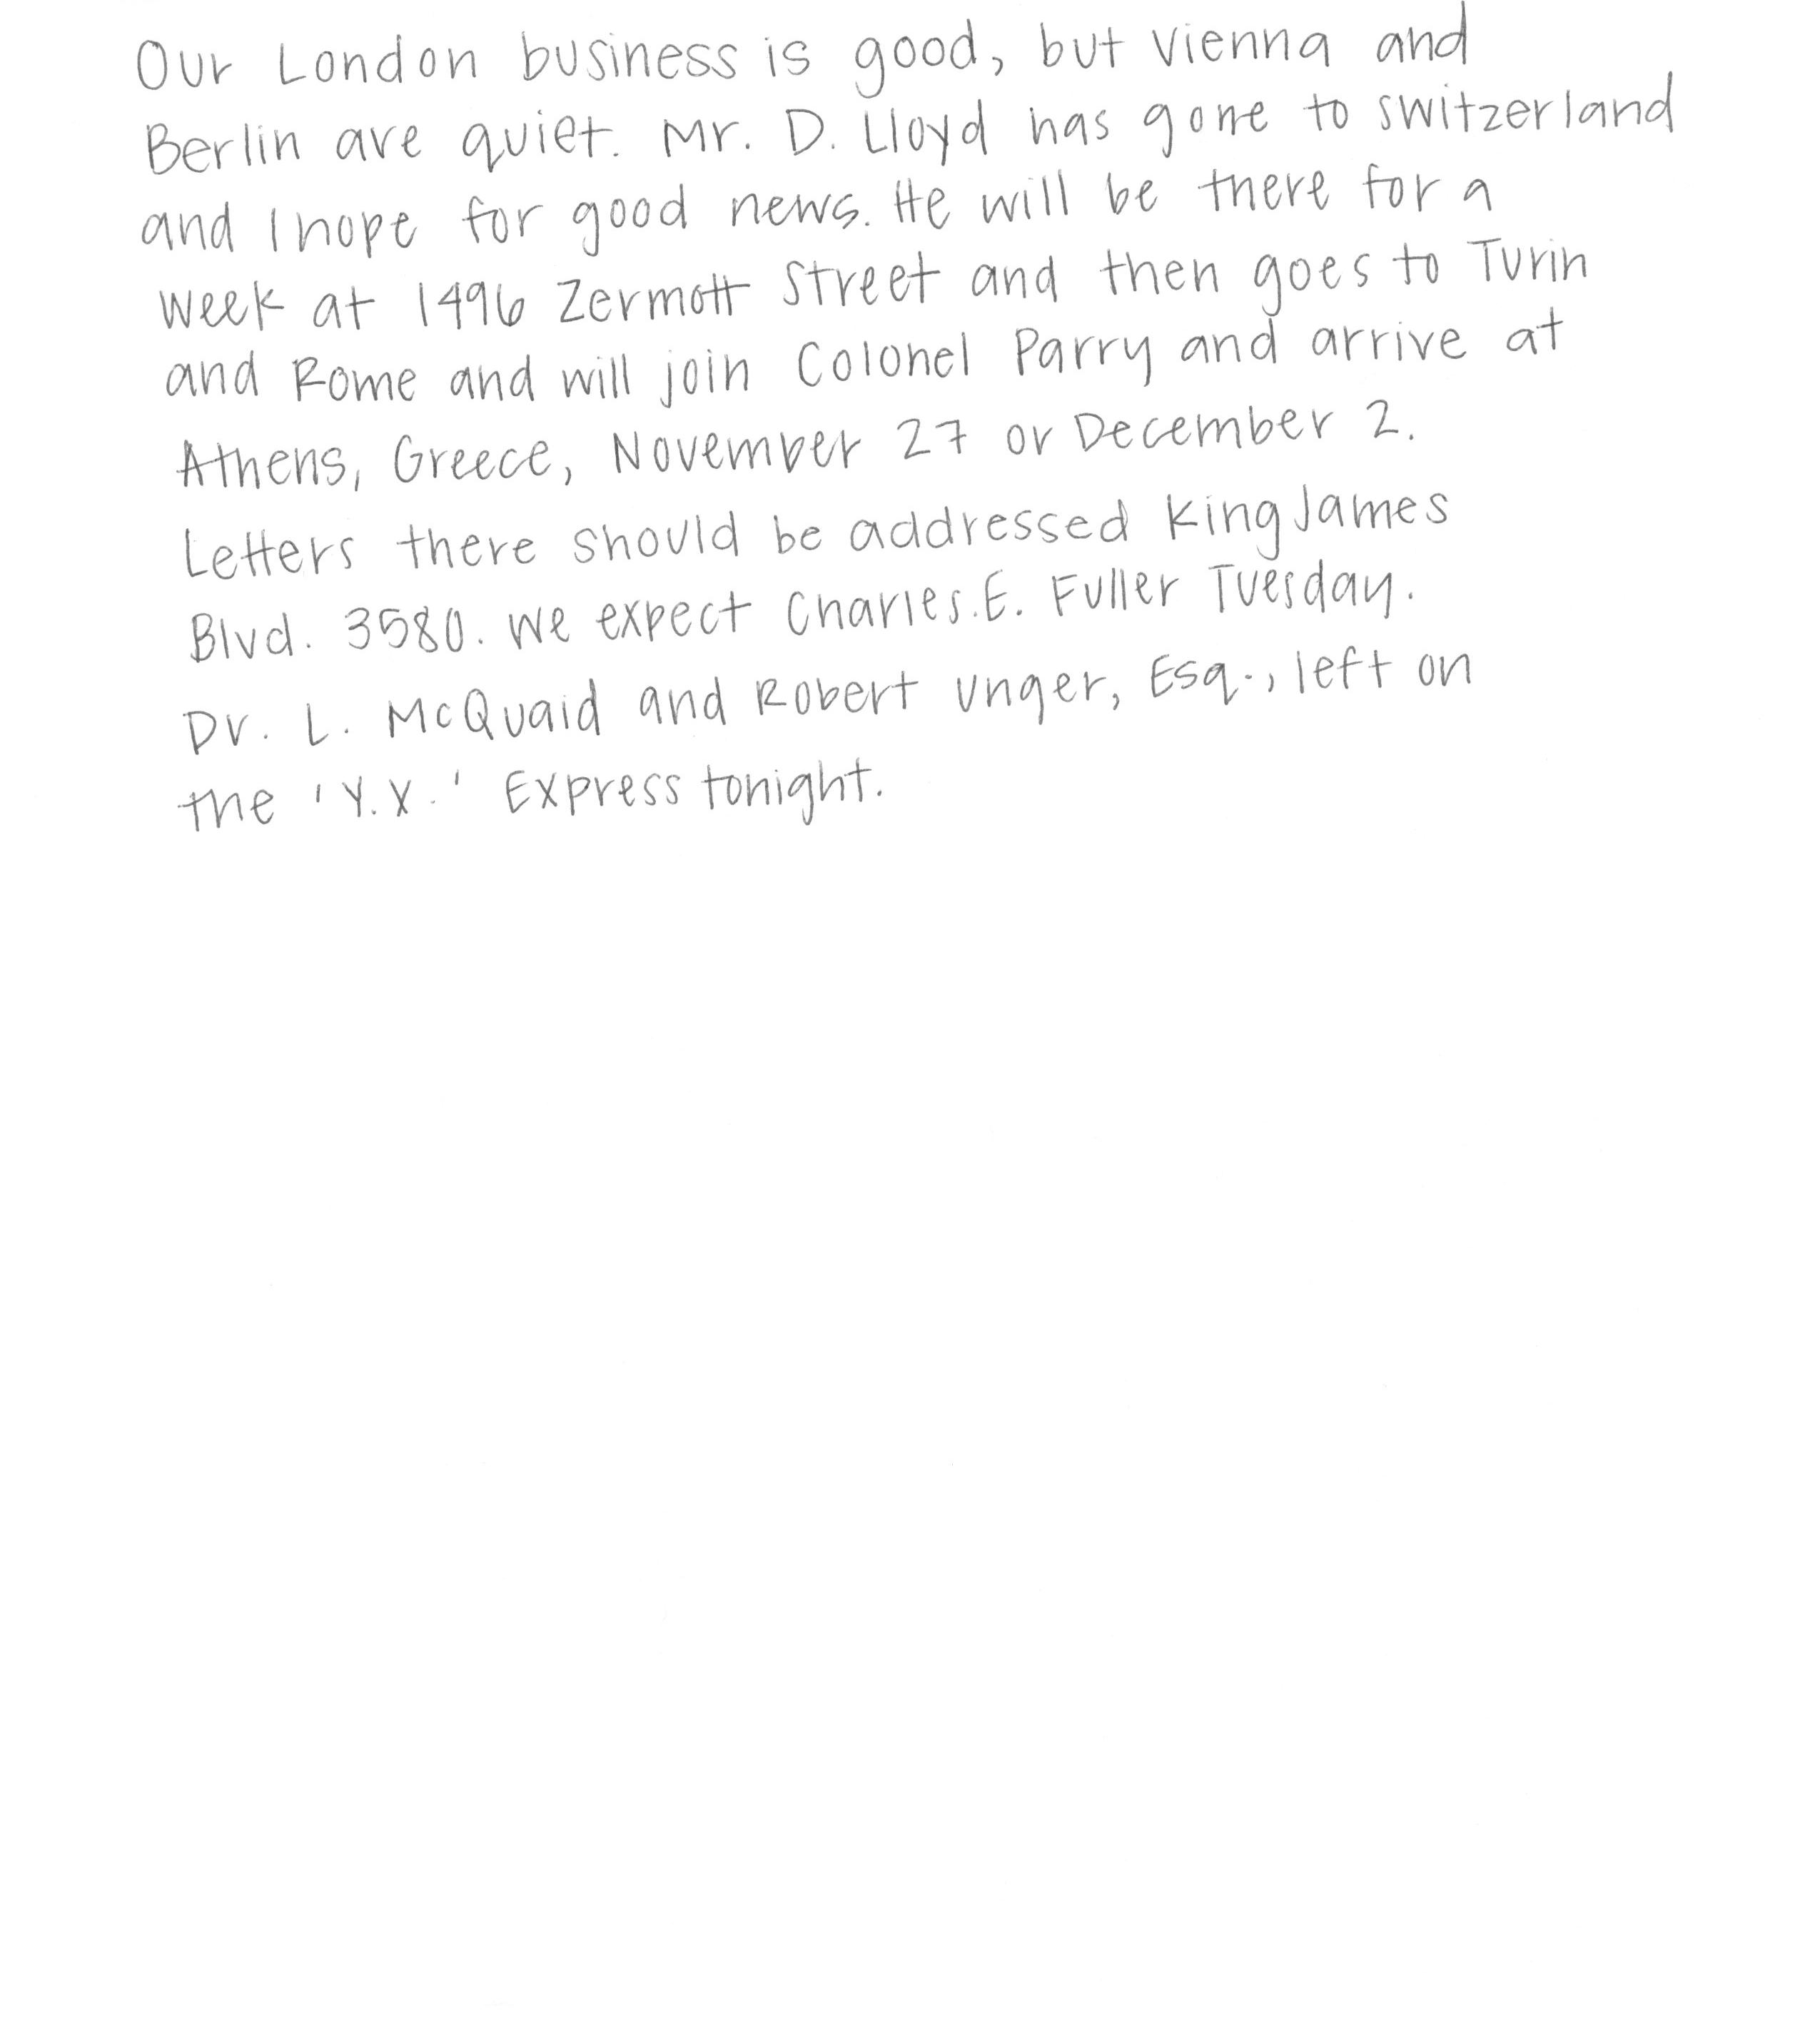 Our London business is good, but Vienna and
Berlin are quiet. Mr. D. Lloyd has gone to Switzerland
and I hope for good news. He will be there for a
week at 1496 Zermott Street and then goes to Turin
and Rome and will join Colonel Parry and arrive at
Athens, Greece, November 27 or December 2.
Letters there should be addressed King James
Blvd. 3580. We expect Charles.E. Fuller Tuesday.
Dr. L. McQuaid and Robert Unger, Esq., left on
the 'Y.X.' Express tonight.